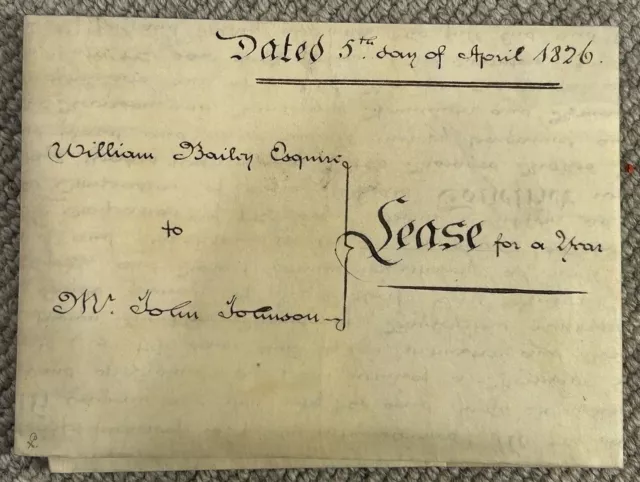 Dated 5th. day of April 1826.
William Bailey Esquire
to
Lease for a Year
Mr. John Johnson